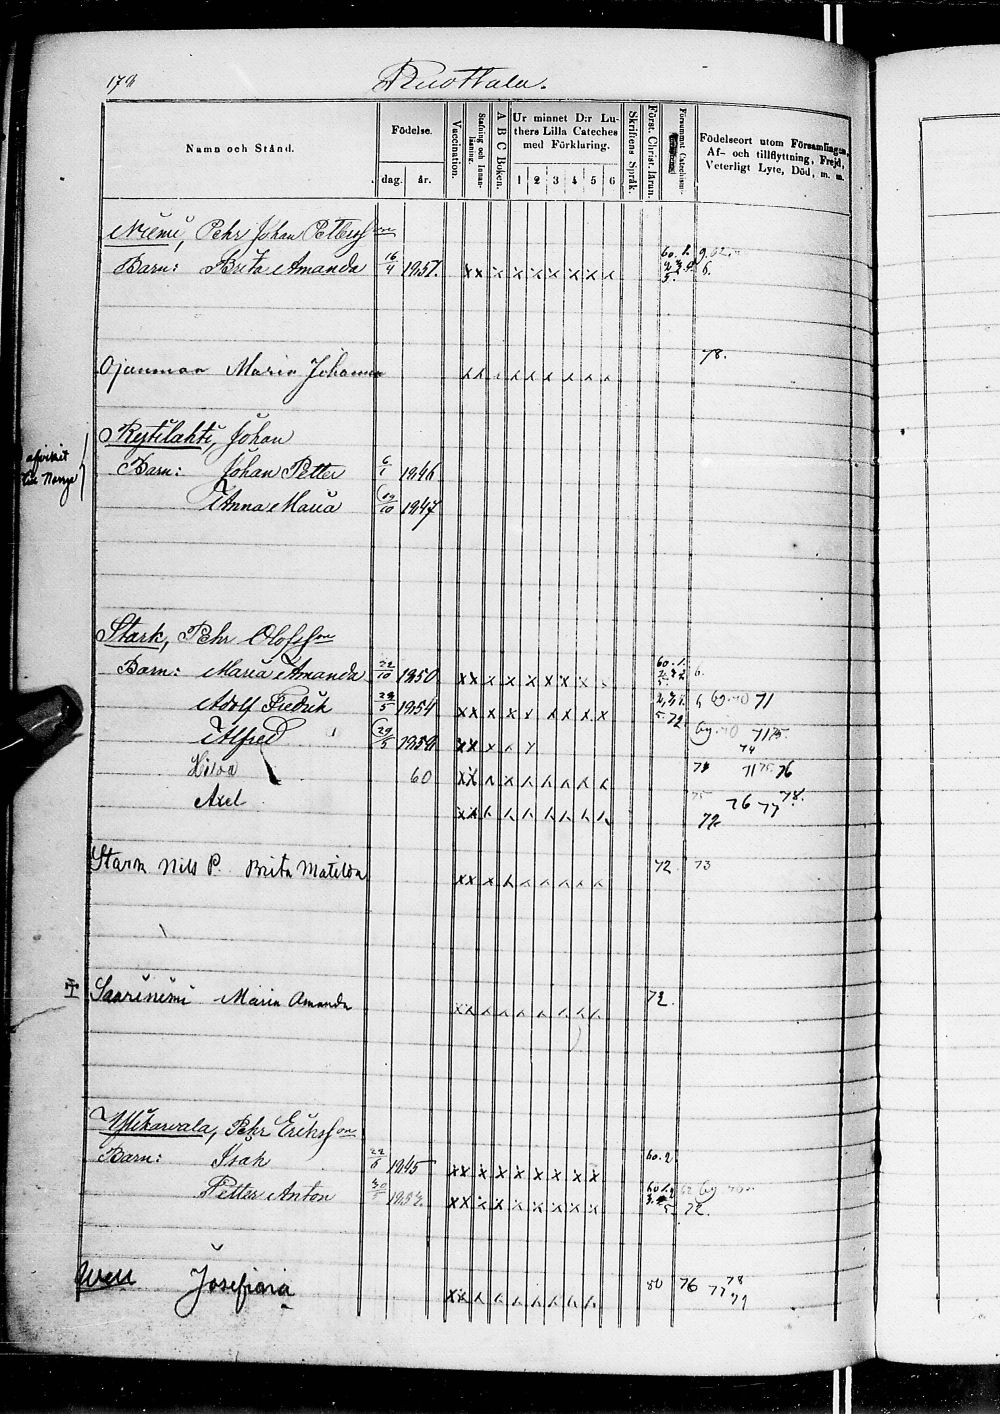 178 Ruottala.
Namn och Stånd.
Födelse.
dag. år.
Vaccination.
Stafning och Innanläsning.
A B C Boken.
Ur minnet D:r Luthers Lilla Cateches med Förklaring.
1 2 3 4 5 6
Skriftens Språk.
Först. Christ. läran.
Försummt Catechismi
Födelseort utom Församlingen, Af- och tillflyttning, Frejd, Veterligt Lyte, Död, m. m.
Niemi, Pehr Johan Pettersson
Barn: Brita Amanda 16/4 1857. x x x x x x x x x 60. 1. 2. 3. 4. 5. 6.
Ojanmaa Maria Johanna 78.
Rytilahti, Johan
afvikit till Norge
Barn: Johan Petter 6/1 1846
Anna Maria 19/10 1847
Stark, Pehr Olofsson
Barn: Maria Amanda 22/10 1850 x x x x x x x x 60. 1. 5. 6.
Adolf Fredrik 28/5 1854 x x x x x x x x x 5. 72. 71
Alfred 29/5 1859 x x x 71 75. 74
Hilda 60 x x 74 71 75 76
Axel x x 75 76 77 78. 72
Stark Nils P. Brita Matilda x x x 72 73
Saariniemi Maria Amanda x x 72.
Ylikarvala, Pehr Eriksson
Barn: Isak 22/6 1845 x x x x x x x x x 60. 2.
Petter Anton 30/5 1853. x x x x x x x x x 5. 72.
Josefina x x 80 76 77 78 79